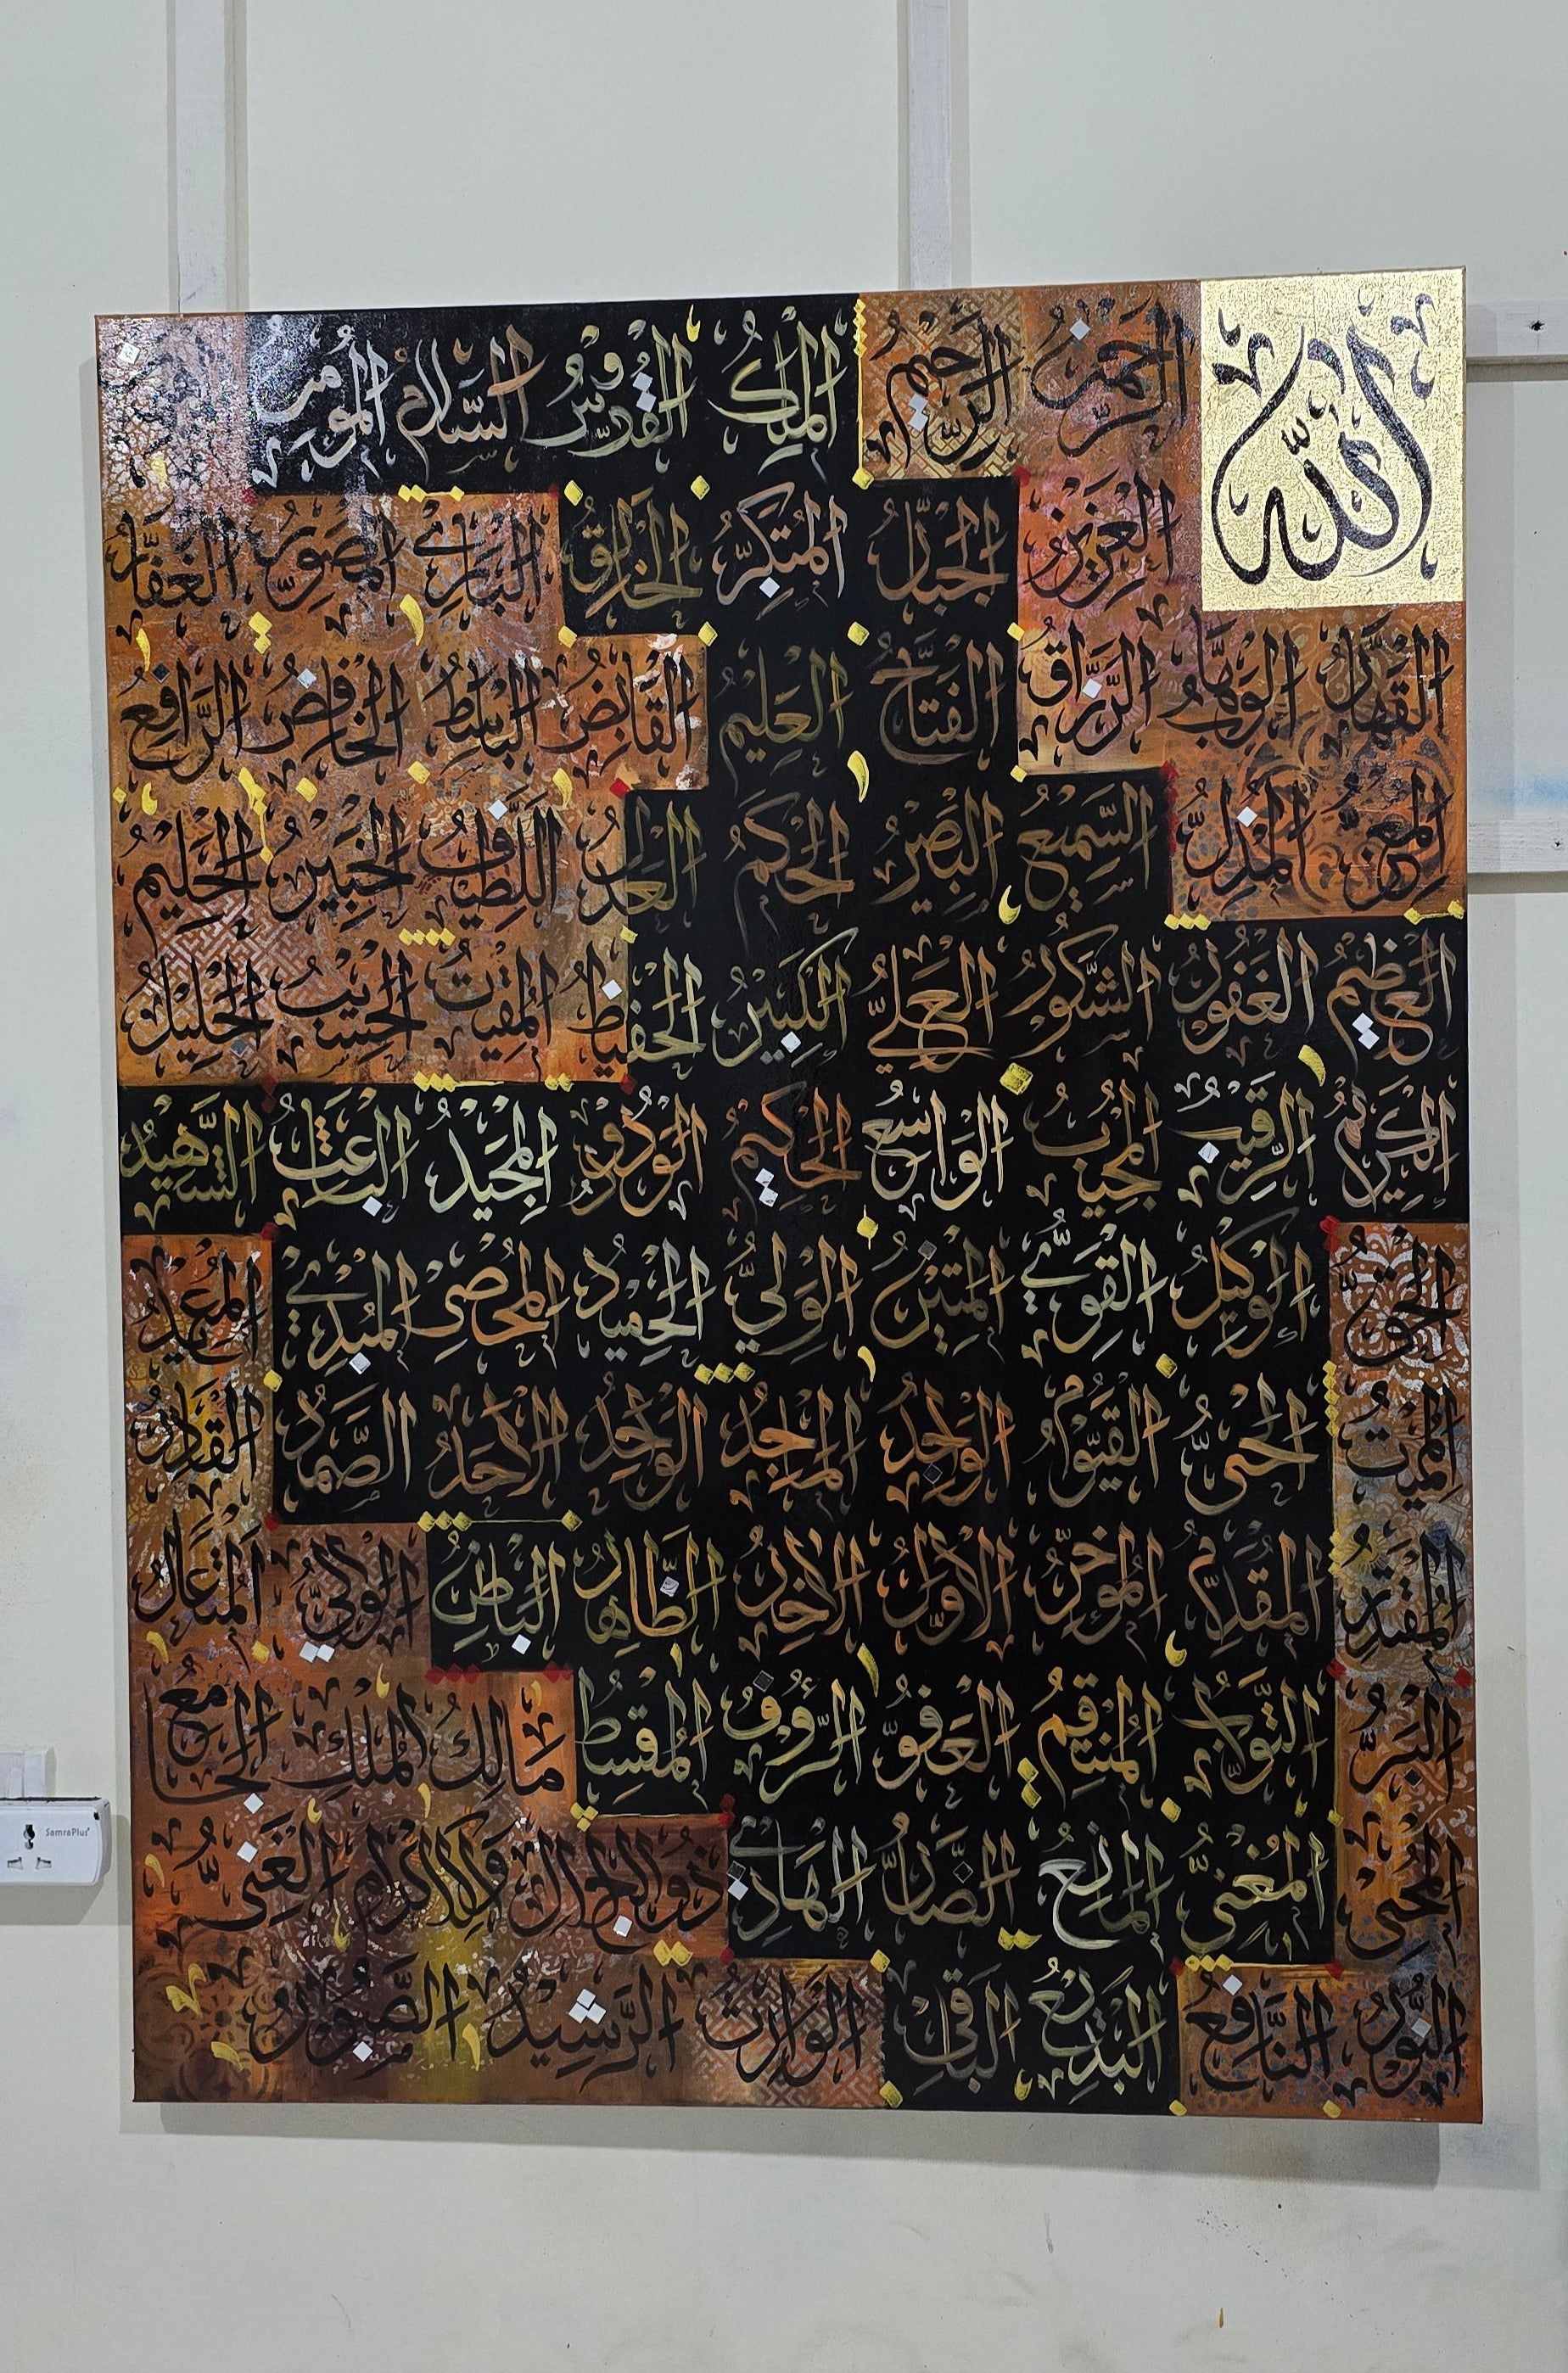 الله
الرَّحْمٰن الرَّحِيم المَلِك القُدُّوس السَّلَام المُومِن
العَزِيز الجَبَّار المُتَكَبِّر الخَالِق البَارِئ المُصَوِّر الغَفَّار
القَهَّار الوَهَّاب الرَّزَّاق الفَتَّاح العَلِيم القَابِض البَاسِط الخَافِض الرَّافِع
المُعِزّ المُذِلّ السَّمِيع البَصِير الحَكَم العَدْل اللَّطِيف الخَبِير الحَلِيم
العَظِيم الغَفُور الشَّكُور العَلِيّ الكَبِير الحَفِيظ المُقِيت الحَسِيب الجَلِيل
الكَرِيم الرَّقِيب المُجِيب الوَاسِع الحَكِيم الوَدُود المَجِيد البَاعِث الشَّهِيد
الحَقّ الوَكِيل القَوِيّ المَتِين الوَلِيّ الحَمِيد المُحْصِي المُبْدِئ المُعِيد
المُمِيت الحَيّ القَيُّوم الوَاجِد المَاجِد الوَاحِد الاَحَد الصَّمَد القَادِر
المُقْتَدِر المُقَدِّم المُوَخِّر الاَوَّل الاخِر الظَّاهِر البَاطِن الوَالِي المُتَعَال
البَرّ التَّوَّاب المُنْتَقِم العَفُوّ الرَّؤُوف المُقْسِط مَالِكُ المُلْكِ الجَامِع
المُحْيِي المُغْنِي المَانِع الضَّارّ الهَادِي ذُو الجَلَال وَالاِكْرَام الغَنِيّ
النُّور النَّافِع البَدِيع البَاقِي الوَارِث الرَّشِيد الصَّبُور
SamraPlus